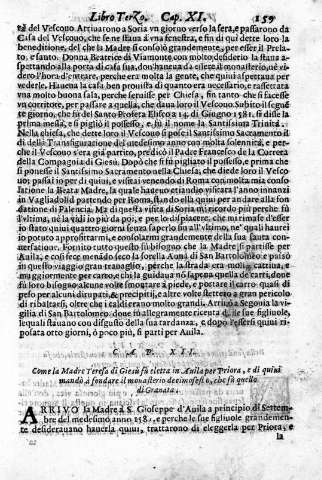 Libro Terzo. Cap. XI. 159
tà del Vescouo. Arriuarono a Soria vn giorno verso la sera, e passarono da
Casa del Vescouo, che se ne staua à vna fenestra, e fin di qui dette loro la
beneditione, del che la Madre si consolò grandemente, per esser il Prela-
to, e santo. Donna Beatrice di Viamonte con molto desiderio la staua a-
spettando alla porta di casa sua, doue haueua da essere il monasterio, nè vi-
dero l'hora d'entrare, perche era molta la gente, che quiui aspettaua per
vederle. Haueua la casa ben prouista di quanto era necessario, e rassettata
vna molto buona sala, perche seruisse per Chiesa, fin tanto che si facesse
vn corritore, per passare a quella, che daua loro il Vescouo. Subito il segue
te giorno, che fù del Santo Profeta Eliseo a 14. di Giugno 1581. si disse la
prima messa, e si pigliò il possesso, e fù il nome la Santissima Trinità.
Nella chiesa, che dette loro il Vescouo si pose il Santissimo Sacramento il
dì della Transfiguratione del medesimo anno con molta solennità, e per-
che il Vescouo s'era già partito, predicò il Padre Francesco de la Carrera
della Compagnia di Giesù. Dopo che si fù pigliato il possesso, e prima che
si ponesse il Santissimo Sacramento nella Chiesa, che diede loro il Vesco-
uo, passai io per di quiui, e visitai venendo di Roma con molta mia conso-
latione la Beata Madre, la quale haueuo etiandio visitata l'anno innanzi
in Vagliadolid partendo per Roma, stando ella quiui per andare alla fon
datione di Palenza. Mi di questa visita di Soria mi ricordo più perche fù
l'vltima, nè la vidi io più da poi, e per lo dispiacere, che mi rimase d'esser
io stato quiui quattro giorni senza saperlo fin all'vltimo, ne' quali haurei
io potuto approfittarmi, e consolarmi grandemente della sua santa con-
uersatione. Fornito tutto quello fù bisogno che la Madre si partisse per
Auila, e così fece menando seco la sorella Anna di San Bartolomeo, e passò
in questo viaggio gran trauaglio, perche la strada era molto cattiua, e
maggiormente per carro, e che la guidaua nò sapeua quella de' carri, de nè
fù loro bisogno alcune volte smontare à piede, e portare il carro quasi di
peso per alcuni dirupati, & precipitij, e altre volte stettero a gran pericolo
di ribaltarsi, oltre che i caldi erano molto grandi. Arriuò a Segouia la vi-
gilia di San Bartolomeo, doue fù allegramente riceuuta da le sue figliuole,
le quali stauano con disgusto della sua tardanza, e dopo l'essersi quiui ri-
posata otto giorni, ò poco più, si partì per Auila.
C A P. XII.
Come la Madre Teresa di Giesù fù eletta in Auila per Priora, e di quiui
mandò à fondare il monasterio decimosesto, che fù quello
di Granata.
ARRIVO la Madre à S. Gioseppe d'Auila a principio di Settem-
bre del medesimo anno 1581, e perche le sue figliuole grandemen-
te desiderauano hauerla quiui, trattarono di eleggerla per Priora, e
la